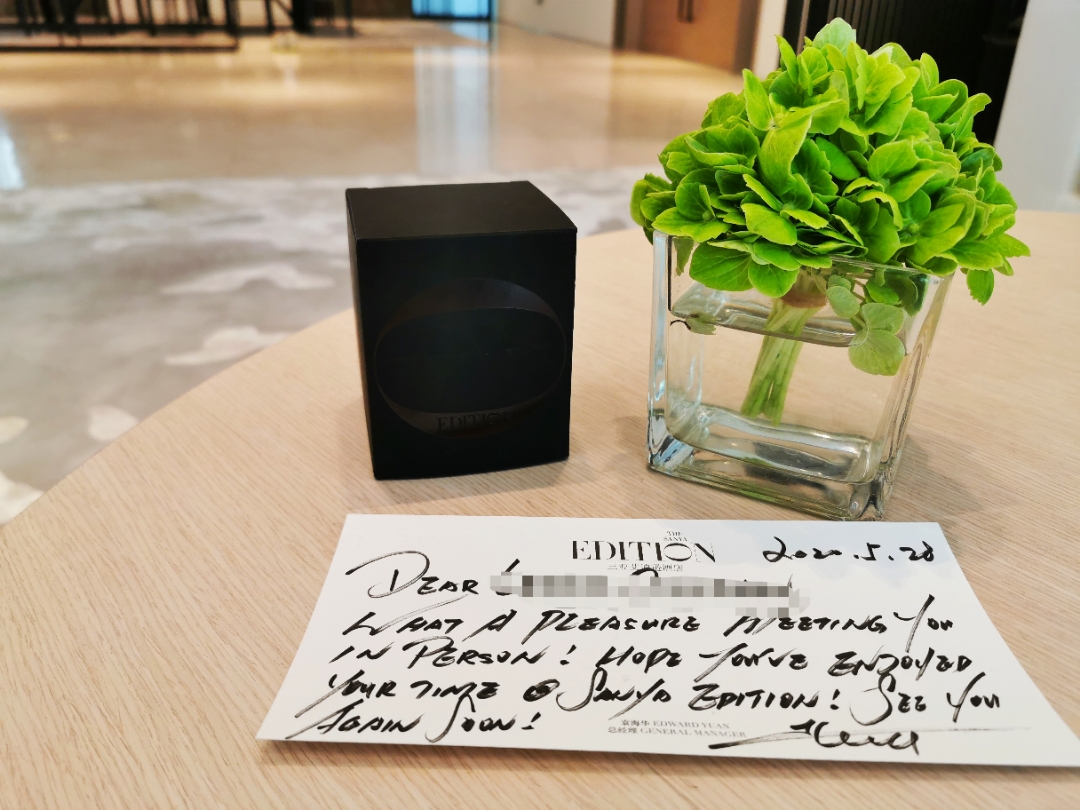 EDITION
THE
SANYA
EDITION
2020.5.28
三亚艾迪逊酒店
DEAR
WHAT A PLEASURE MEETING YOU
IN PERSON! HOPE YOU'VE ENJOYED
YOUR TIME @ SANYA EDITION! SEE YOU
AGAIN SOON!
袁海华 EDWARD YUAN
总经理 GENERAL MANAGER